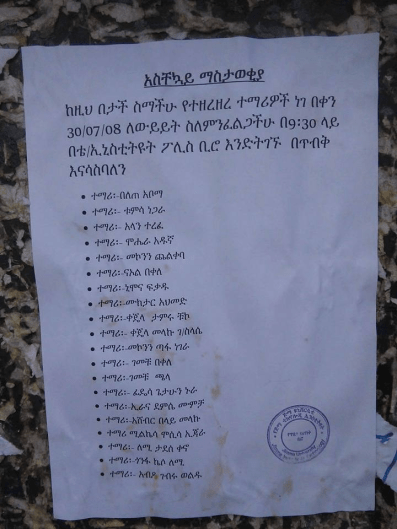 አስቸኳይ ማስታወቂያ
ከዚህ በታች ስማችሁ የተዘረዘረ ተማሪዎች ነገ በቀን
30/07/08 ለውይይት ስለምንፈልጋችሁ በ9፡30 ላይ
በቴ/ኢንስቲትዩት ፖሊስ ቢሮ እንድትገኙ በጥብቅ
እናሳስባለን
• ተማሪ፡-በለጠ አቦማ
• ተማሪ፡- ቱምሳ ነጋራ
• ተማሪ፡- አላን ተረፈ
• ተማሪ፡- ሞሔራ አዱኛ
• ተማሪ፡- መኮንን ጨልቀባ
• ተማሪ፡-ናኦል በቀለ
• ተማሪ፡-ኒሞና ፍቃዱ
• ተማሪ፡-ሙክታር አህመድ
• ተማሪ፡-ቀጄላ ታምሩ ቹኮ
• ተማሪ፡- ቀጄላ መላኩ ገ/ስላሴ
• ተማሪ፡-መኮንን ጣፋ ነገራ
• ተማሪ፡- ገመቹ በቀለ
• ተማሪ፡-ገመቹ ጫላ
• ተማሪ፡- ፈዴሳ ጌታሁን ኑራ
• ተማሪ፡-ኢራና ደምሴ
• ተማሪ፡-አሸብር በላይ መላኩ
• ተማሪ ሚልኬሳ ሞሲሳ ኢጃራ
• ተማሪ፡- ለሚ ታደሰ ቀኖ
• ተማሪ፡-ጎንፋ ኬሶ ለሚ
• ተማሪ፡- አብዲ ጉብሩ ወልዱ